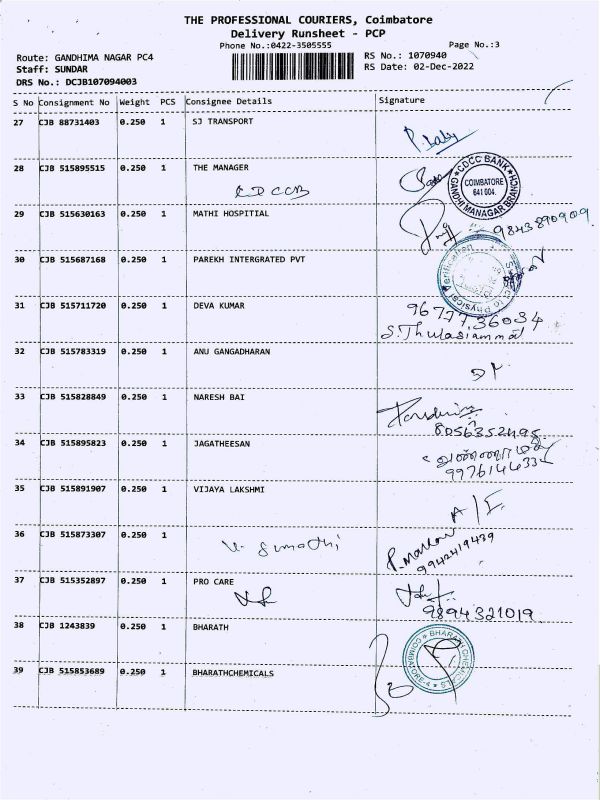 THE PROFESSIONAL COURIERS, Coimbatore
Delivery Runsheet - PCP
Phone No.:0422-3505555
Page No.:3
Route: GANDHIMA NAGAR PC4
RS No.: 1070940
Staff: SUNDAR
RS Date: 02-Dec-2022
DRS No.: DCJB107094003
S No Consignment No Weight PCS Consignee Details Signature
27 CJB 88731403 0.250 1 SJ TRANSPORT
P. baby
28 CJB 515895515 0.250 1 THE MANAGER
CDCC BANK
COIMBATORE
641 004.
GANDHI MANAGAR BRANCH
29 CJB 515630163 0.250 1 MATHI HOSPITIAL
9843890909
30 CJB 515687168 0.250 1 PAREKH INTERGRATED PVT
31 CJB 515711720 0.250 1 DEVA KUMAR
96777,36034
S.Thulasiammal
32 CJB 515783319 0.250 1 ANU GANGADHARAN
33 CJB 515828849 0.250 1 NARESH BAI
8056352495
34 CJB 515895823 0.250 1 JAGATHEESAN
35 CJB 515891907 0.250 1 VIJAYA LAKSHMI
36 CJB 515873307 0.250 1
V. Sumathi
9942419439
37 CJB 515352897 0.250 1 PRO CARE
9894321019
38 CJB 1243839 0.250 1 BHARATH
BHARATH CHEMICALS
COIMBATORE-4
39 CJB 515853689 0.250 1 BHARATHCHEMICALS